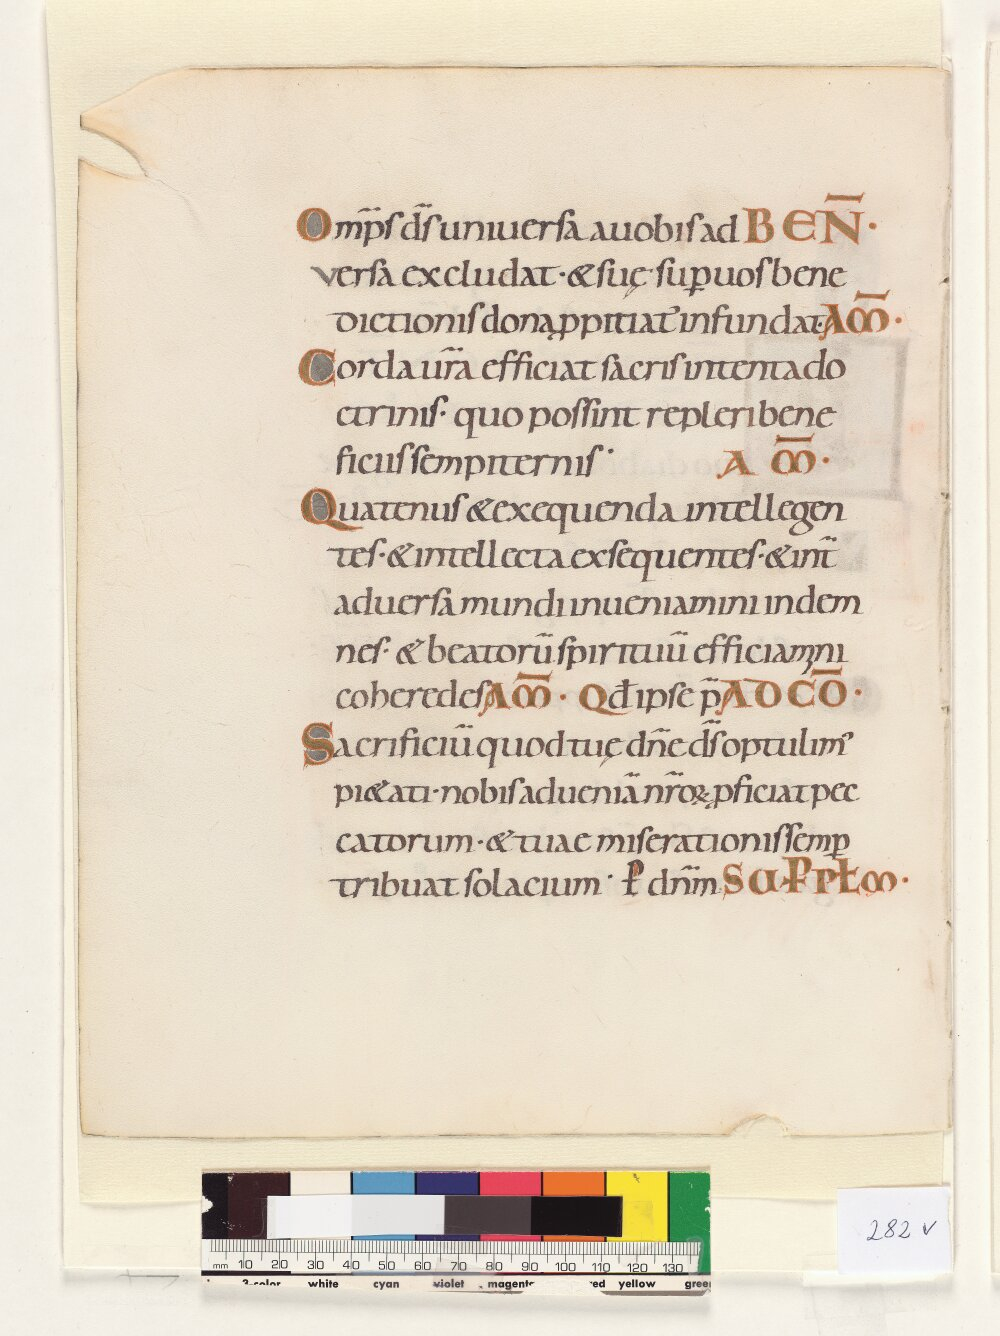 Om̅p̅s d̅s uniuersa a uobis ad BEN̅·
versa excludat·&suę·sup̲ uos bene
dictionis dona ꝓpitiat᷑ infundat·AM̅·
Corda ur̅a efficiat sacris intenta do
ctrinis· quo possint repleri bene
ficiis sempiternis· A M̅·
Quatenus & exequenda intellegen
tes·& intellecta exsequentes·& int̅
aduersa mundi inueniamini indem
nes· & beatoru̅ spirituu̅ efficiamni
coheredes AM̅· Qđ ipse p̅ AD CO̅·
Sacrificiu̅ quod tuę dn̅e d̅s optulim᷒
pi&ati·nobis ad uenia̅ nr̅oꝝ ꝓficiat pec
catorum·& tuae miserationis semp̲
tribuat solacium· P̲ dn̅m SUP PŁM·
282 v
mm 10 20 30 40 50 60 70 80 90 100 110 120 130
3-color white cyan violet magenta red yellow green